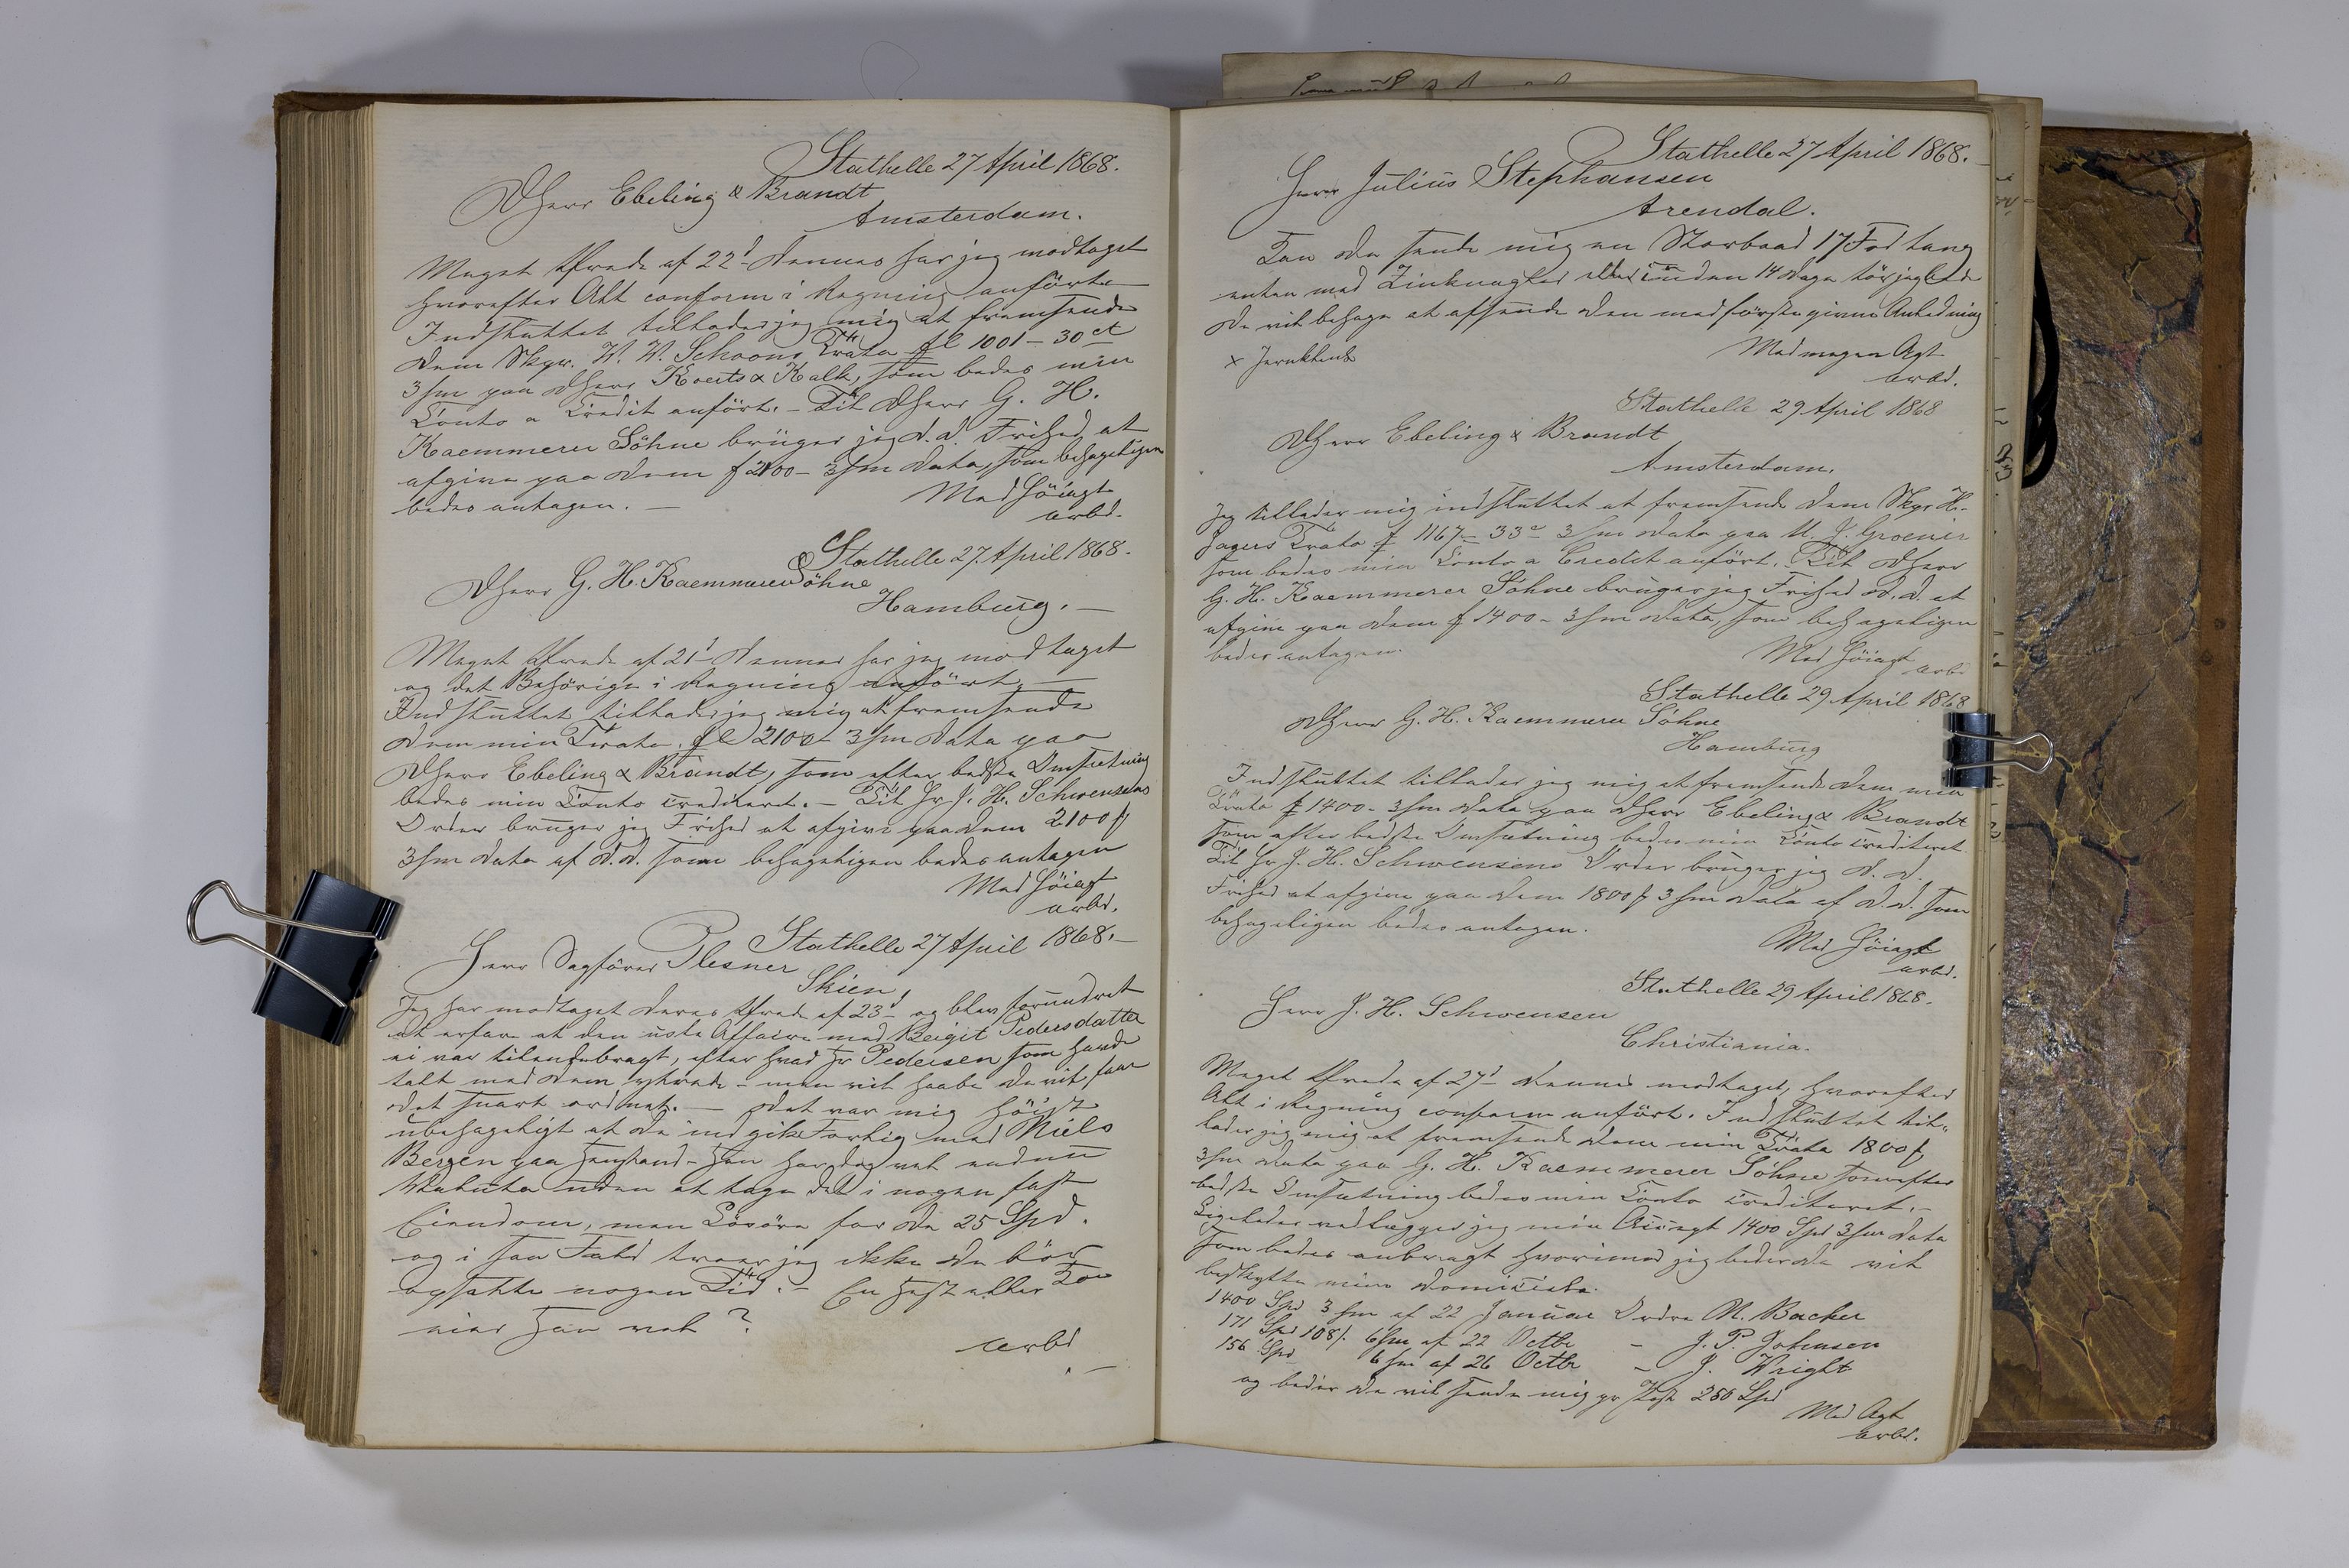 Stathelle 27 April 1868.
DHerr Ebeling & Brandt
Amsterdam.
Meget Ærede af 22d Dennes har jeg modtaget
hvorefter Alt conform i Regning anført.
Indsluttet tillader jeg mig at fremsende
Dem Skpr. W. W. Schoons Tratte fl 1001 - 30 ct
3 Sm paa DHerr Koerts & Kalk, som bedes min
Conto a Credit anført. - Til DHerr G. H.
Kaemmerer Söhne bruger jeg d. d. Frihed at
afgive paa Dem f 2100 - 3 Sm data, som behageligen
bedes antagen. -
Med Höiagt
arbd.
Stathelle 27. April 1868.
DHerr G. H. Kaemmerer Söhne
Hamburg. -
Meget Ærede af 21d Dennes har jeg modtaget
og det Behörige i Regning anfört. -
Indsluttet tillader jeg mig at fremsende
Dem min Tratte fl 2100 - 3 Sm data paa
DHerr Ebeling & Brandt, som efter bedste Omsætning
bedes min Conto crediteret. - Til Hr J. H. Schwensens
Ordre bruger jeg Frihed at afgive paa Dem 2100 f
3 Sm data af d. d. som behageligen bedes antagen
Med Höiagt
arbd.
Stathelle 27 April 1868. -
Herr Sagförer Plesner
Skien,
Jeg har modtaget Deres Ærede af 23d og blev forundret
at erfare at den Affaire med Beigit Pedersdatter
ei var tilendebragt, efter hvad Hr Pedersen som havde
talt med Dem - men vil haabe De vil faae
det snart ordnet. - Det var mig höist
ubehageligt at De indgik Forlig med Niels
Bergen paa Henstand - han har da vel endnu
uden at tage det i nogen fast
Eiendom, men Lösöre for de 25 Spd.
og i saa Fald troer jeg ikke De bör
opsætte nogen Tid. - En Hest eller Ko
eier han vel?
arbd
Stathelle 27 April 1868. -
Herr Julius Stephansen
Arendal.
Kan De sende mig en Storbaad 17 Fod lang
enten med Zinknagler eller x inden 14 Dage tör jeg bede
De vil behage at afsende den med förste givne Anledning
x Jernklink
Med megen Agt
arbd.
Stathelle 29 April 1868
DHerr Ebeling & Brandt
Amsterdam.
Jeg tillader mig indsluttet at fremsende Dem Skpr H.
Jagers Tratte f 1167 - 33 c 3 Sm data paa M. J. Groenier
som bedes min Conto a Credit anfört. Til DHerr
G. H. Kaemmerer Söhne bruger jeg Frihed d. d. at
afgive paa Dem f 1400 - 3 Sm data, som behageligen
bedes antagen.
Med Höiagt
arbd.
Stathelle 29 April 1868
DHerr G. H. Kaemmerer Söhne
Hamburg
Indsluttet tillader jeg mig at fremsende Dem min
Tratte f 1400 - 3 Sm data paa DHerr Ebeling & Brandt
som efter bedste Omsætning bedes min Conto crediteret.
Til Hr J. H. Schwensens Ordre bruger jeg d. d.
Frihed at afgive paa Dem 1800 f 3 Sm data af d. d. som
behageligen bedes antagen.
Med Höiagt
arbd.
Stathelle 29 April 1868.
Herr J. H. Schwensen
Christiania.
Meget Ærede af 27d Dennes modtaget, hvorefter
Alt i Regning conform anfört. Indsluttet til-
lader jeg mig at fremsende Dem min Tratte 1800 f
3 Sm data paa G. H. Kaemmerer Söhne som efter
bedste Omsætning bedes min Conto crediteret. -
Ligeledes vedlægger jeg min Accept 1400 Spd 3 Sm data
som bedes anbragt hvorimod jeg beder De vil
beskytte mine Domicile.
1400 Spd 3 Sm af 22 Januar Ordre N. Backer
171 Spd 108 f. 6 Sm af 22 Octbr - J. P. Johnsen
156 Spd 6 Sm af 26 Octbr - J. Wright
og beder De vil sende mig pr Post 250 Spd
Med Agt
arbd.